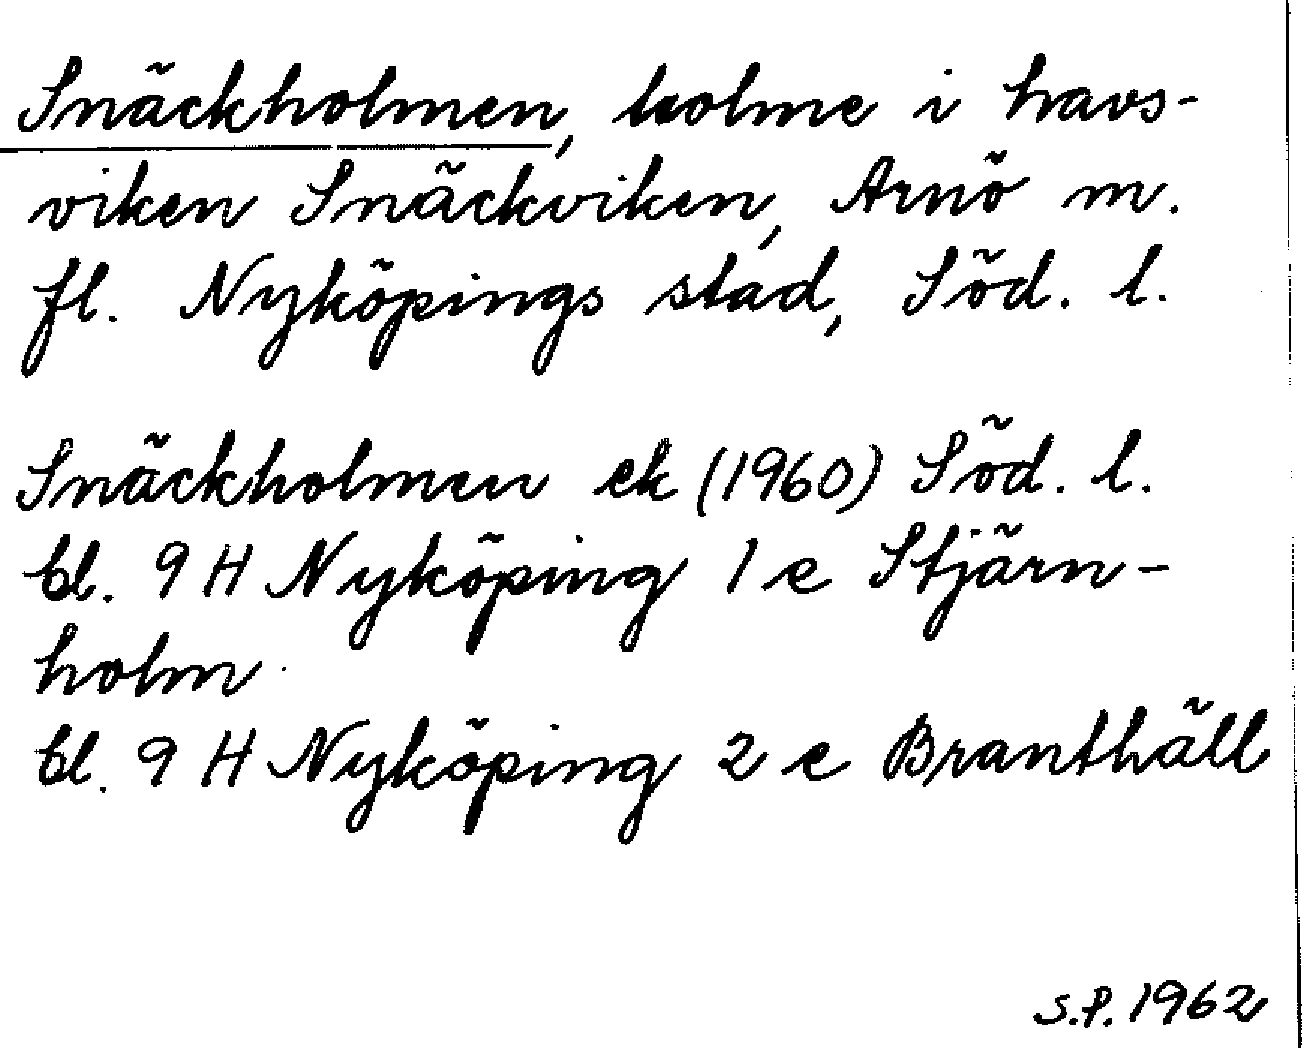 Snäckholmen, holme i havs-
viken Snäckviken, Arnö m.
fl. Nyköpings stad, Söd. l.
Snäckholmen ek (1960) Söd. l.
bl. 9 H Nyköping 1 e Stjärn-
holm
bl. 9 H Nyköping 2 e Branthäll
S.P. 1962